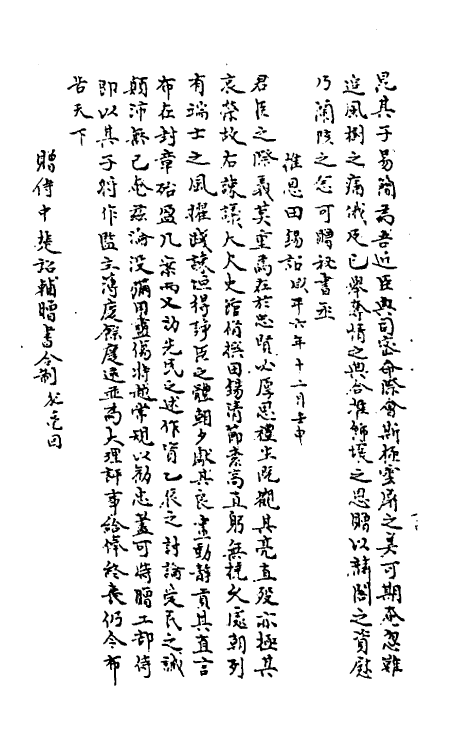 昆其子易簡爲吾近臣典司密命際會斯極寵昇之美可期奄忽雖
追風樹之痛俄及已舉尊情之典合推錫壤之恩贈以麟閣之資慰
乃蘭陔之念可贈秘書丞
推恩田錫詔咸平六年十二月壬申
君臣之際義莫重焉在於忠賢必厚恩禮生既觀其亮直殁亦極其
哀榮故右諫議大夫史館修撰田錫清節素高直躬無撓久處朝列
有端士之風擢踐諫垣得諍臣之體朝夕獻其良畫動静貢其直言
布在封章殆盈几案而又劾先民之述作資乙夜之討論完民之誠
顛沛無已奄兹淪没彌用盡傷將越常規以勸忠藎可特贈工部侍
即以其子衍作監主簿慶餘慶遠並爲大理評事給俸終喪仍令布
告天下
贈侍中楚詔輔贈書令制